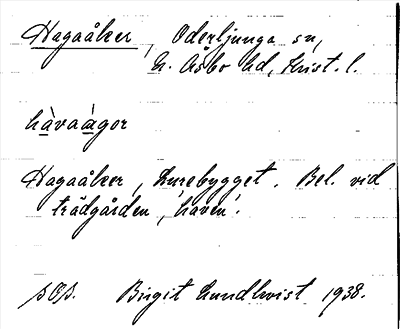 Hagaåker, Oderljunga sn,
N. Åsbo hd, Krist. l.
hàvaàgor
Hagaåker, Lurebygget. Bel. vid
trädgården, 'haven'.
sOs. Birgit Lundkvist 1938.